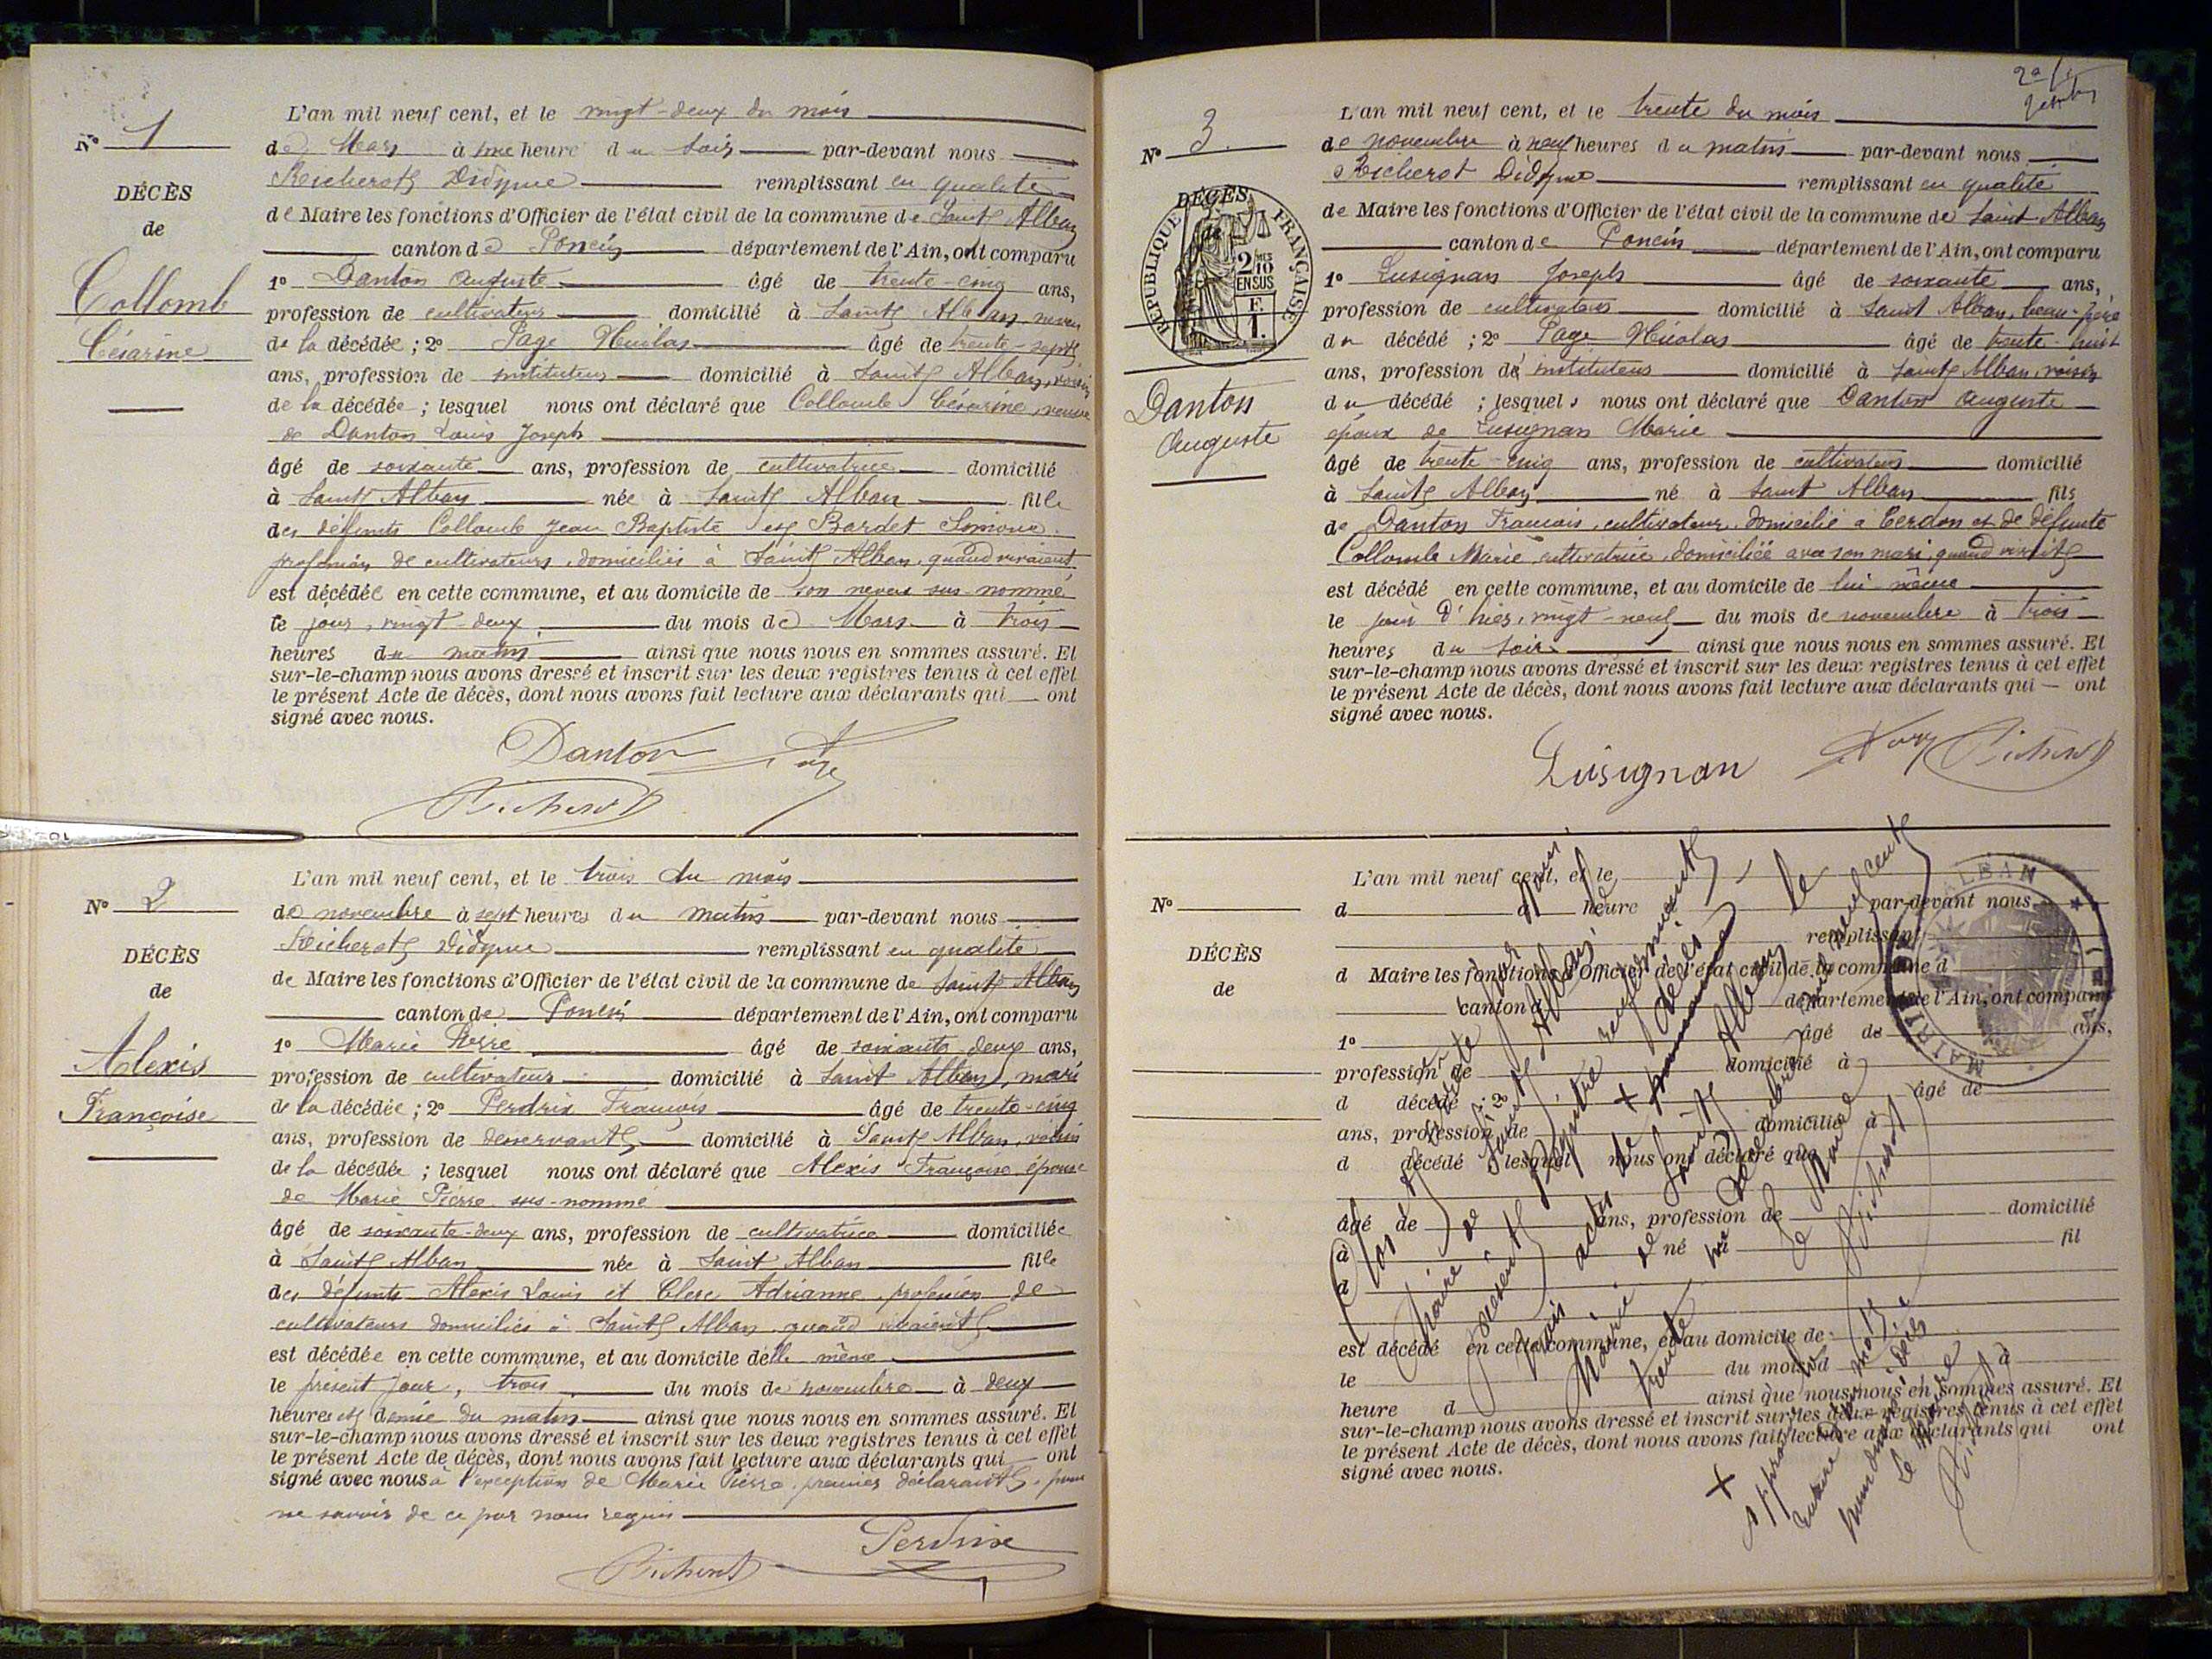 N° 1
DÉCÈS
de
Collomb
Césarine
L'an mil neuf cent, et le vingt-deux du mois
de Mars à une heure du soir par-devant nous
Richerot Didyme remplissant en qualité
de Maire les fonctions d'Officier de l'état civil de la commune de Saint Alban
canton de Poncin département de l'Ain, ont comparu
1° Danton Auguste âgé de trente-cinq ans,
profession de cultivateur domicilié à Saint Alban, neveu
de la décédée ; 2° Page Nicolas âgé de trente-sept
ans, profession de instituteur domicilié à Saint Alban, voisin
de la décédée ; lesquel nous ont déclaré que Collomb Césarine, veuve
de Danton Louis Joseph
âgé de soixante ans, profession de cultivatrice domicilié
à Saint Alban née à Saint Alban fille
des défunts Collomb Jean Baptiste et Bardet Simone
profession de cultivateurs, domiciliés à Saint Alban, quand vivaient
est décédée en cette commune, et au domicile de son neveu sus-nommé
le jour, vingt-deux du mois de Mars à trois
heures du matin ainsi que nous nous en sommes assuré. Et
sur-le-champ nous avons dressé et inscrit sur les deux registres tenus à cet effet
le présent Acte de décès, dont nous avons fait lecture aux déclarants qui ont
signé avec nous.
Danton Page
Richerot
N° 2
DÉCÈS
de
Alexis
Françoise
L'an mil neuf cent, et le trois du mois
de novembre à sept heures du matin par-devant nous
Richerot Didyme remplissant en qualité
de Maire les fonctions d'Officier de l'état civil de la commune de Saint Alban
canton de Poncin département de l'Ain, ont comparu
1° Marie Pierre âgé de soixante deux ans,
profession de cultivateur domicilié à Saint Alban, mari
de la décédée ; 2° Perdrix François âgé de trente-cinq
ans, profession de desservant domicilié à Saint Alban, voisin
de la décédée ; lesquel nous ont déclaré que Alexis Françoise, épouse
de Marie Pierre sus-nommé
âgé de soixante-deux ans, profession de cultivatrice domiciliée
à Saint Alban née à Saint Alban fille
des défunts Alexis Louis et Clerc Adrianne, profession de
cultivateurs domiciliés à Saint Alban quand vivaient
est décédée en cette commune, et au domicile d'elle même
le présent jour, trois du mois de novembre à deux
heures et demie du matin ainsi que nous nous en sommes assuré. Et
sur-le-champ nous avons dressé et inscrit sur les deux registres tenus à cet effet
le présent Acte de décès, dont nous avons fait lecture aux déclarants qui ont
signé avec nous à l'exception de Marie Pierre, premier déclarant, pour
ne savoir de ce par nous requis
Perdrix
Richerot
N° 3
DÉCÈS
de
RÉPUBLIQUE FRANÇAISE
2/10 MES
EN SUS
F.
1.
Danton
Auguste
L'an mil neuf cent, et le trente du mois
de novembre à neuf heures du matin par-devant nous
Richerot Didyme remplissant en qualité
de Maire les fonctions d'Officier de l'état civil de la commune de Saint-Alban
canton de Poncin département de l'Ain, ont comparu
1° Lusignan Joseph âgé de soixante ans,
profession de cultivateur domicilié à Saint Alban, beau-père
du décédé ; 2° Page Nicolas âgé de trente-huit
ans, profession de instituteur domicilié à Saint Alban, voisin
du décédé ; lesquels nous ont déclaré que Danton Auguste
époux de Lusignan Marie
âgé de trente-cinq ans, profession de cultivateur domicilié
à Saint Alban né à Saint Alban fils
de Danton François, cultivateur, domicilié à Cerdon et de défunte
Collomb Marie, cultivatrice, domiciliée avec son mari, quand vivait
est décédé en cette commune, et au domicile de lui-même
le jour d'hier, vingt-neuf du mois de novembre à trois
heures du soir ainsi que nous nous en sommes assuré. Et
sur-le-champ nous avons dressé et inscrit sur les deux registres tenus à cet effet
le présent Acte de décès, dont nous avons fait lecture aux déclarants qui ont
signé avec nous.
Lusignan Page Richerot
N°
DÉCÈS
de
L'an mil neuf cent, et le
d à heure par-devant nous
remplissant
d Maire les fonctions d'Officier de l'état civil de la commune d
canton d département de l'Ain, ont comparu
1° âgé de ans,
profession de domicilié à
d décédé ; 2° âgé de
ans, profession de domicilié à
d décédé lesquel nous ont déclaré que
âgé de ans, profession de domicilié
à né à fil
d
est décédé en cette commune, et au domicile de
le du mois d à
heure d ainsi que nous nous en sommes assuré. Et
sur-le-champ nous avons dressé et inscrit sur les deux registres tenus à cet effet
le présent Acte de décès, dont nous avons fait lecture aux déclarants qui ont
signé avec nous.
Clos et arrêté par nous
Maire de Saint Alban, le
présent registre renfermant
trois actes de décès
Mairie de Saint Alban, le
trente décembre mil neuf cent
Le Maire
Richerot
MAIRIE ALBAN
Le Maire
Richerot